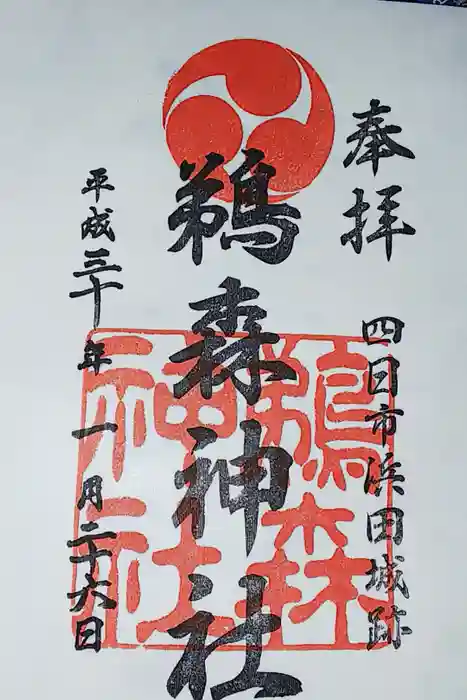 奉拝
四日市浜田城跡
鵜森神社
平成三十年一月二十六日
鵜森
神社